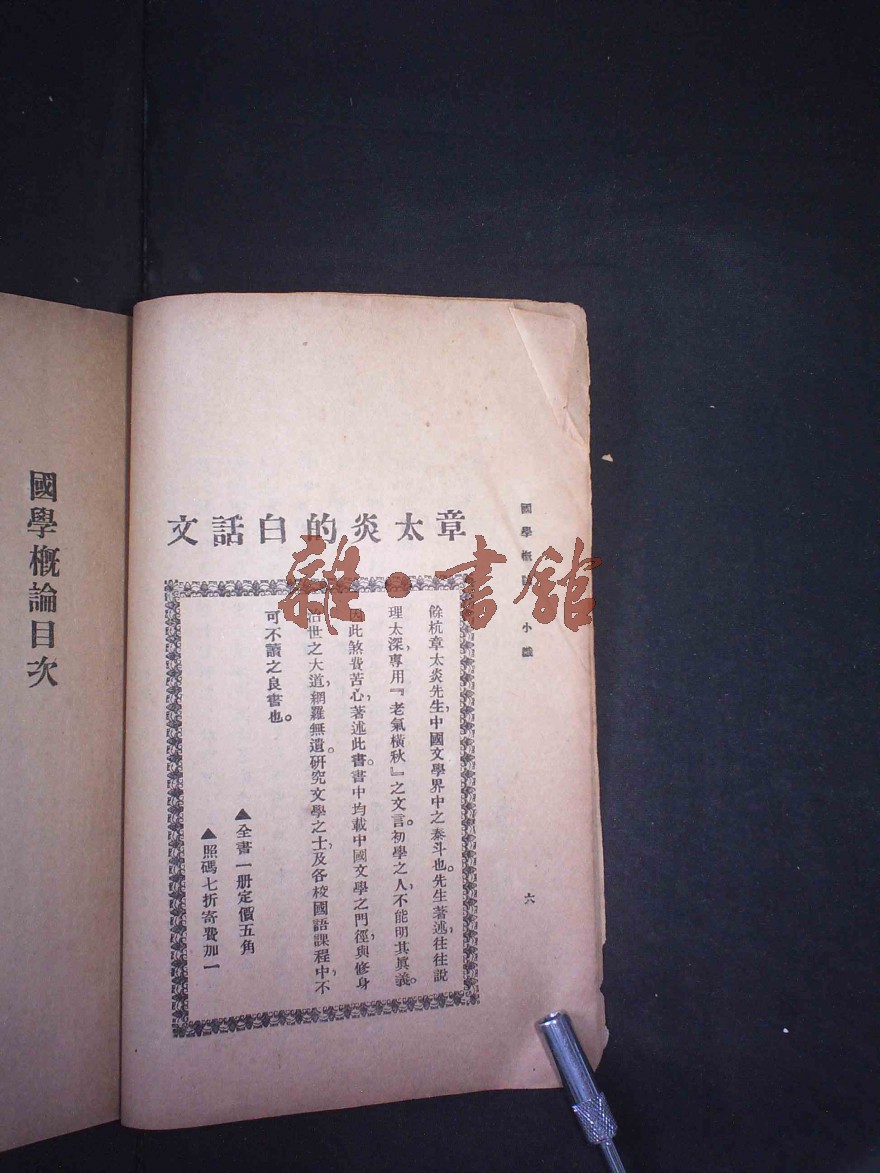 國學概 小識
六
章太炎的白話文
餘杭章太炎先生,中國文學界中之泰斗也。先生著述,往往說
理太深,專用『老氣橫秋』之文言。初學之人,不能明其眞義。
因此煞費苦心,著述此書。書中均載中國文學之門徑,與修身
治世之大道,網羅無遺。研究文學之士,及各校國語課程中,不
可不讀之良書也。
▲全書一册定價五角
▲照碼七折寄費加一
國學概論目次
雜·書館